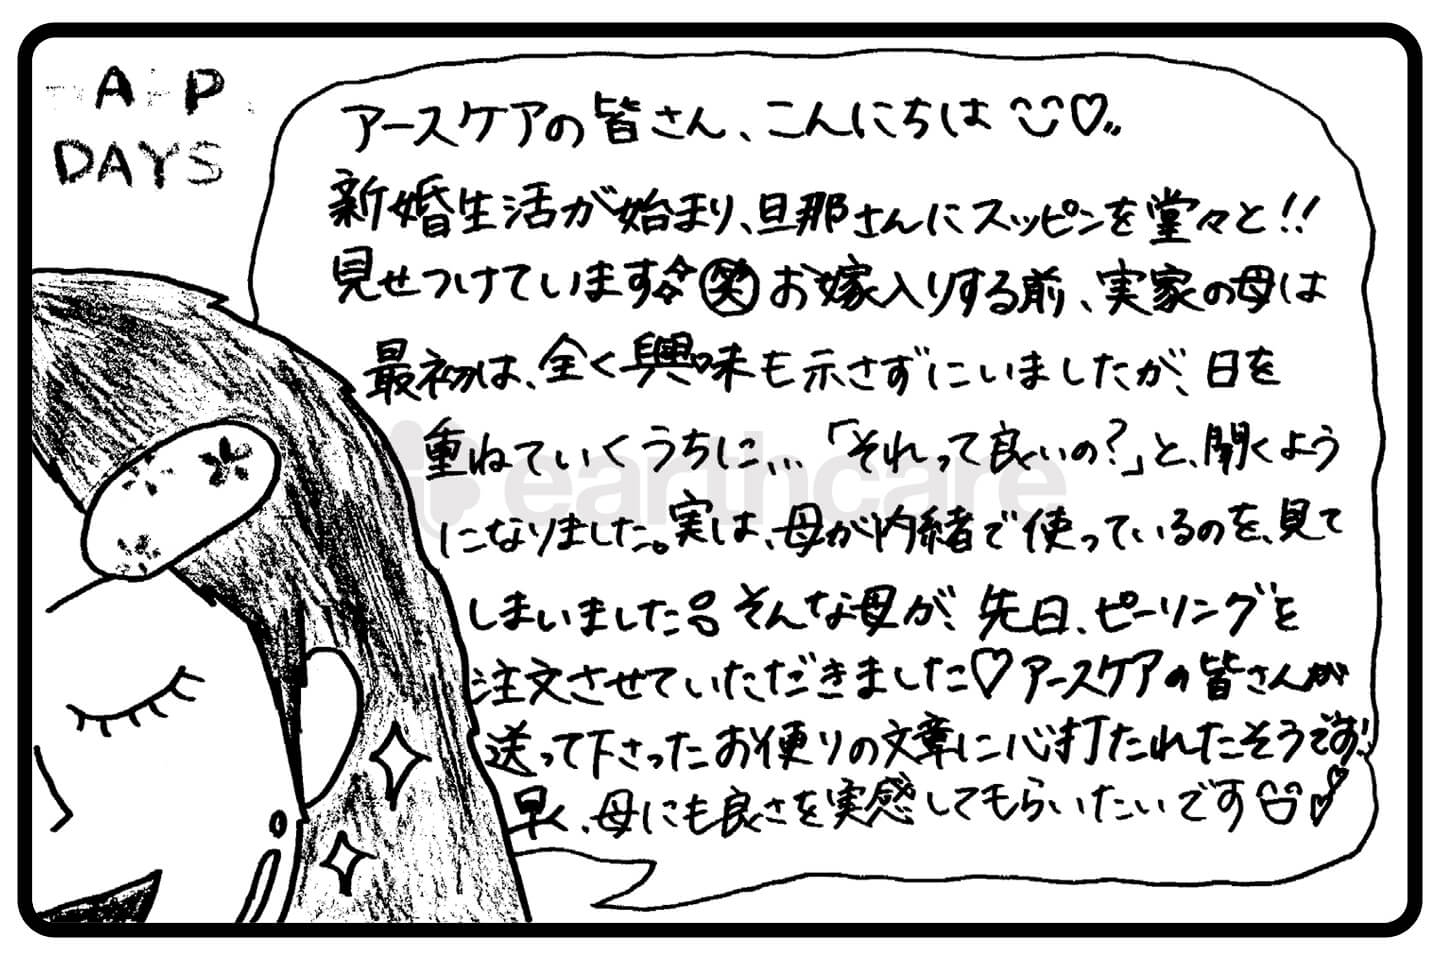 A P
DAYS
アースケアの皆さん、こんにちは♡
新婚生活が始まり、旦那さんにスッピンを堂々と!!
見せつけています 笑 お嫁入りする前、実家の母は
最初は、全く興味も示さずにいましたが、日を
重ねていくうちに… 「それって良いの?」と、聞くよう
になりました。実は、母が内緒で使っているのを、見て
しまいました。そんな母が、先日、ピーリングを
注文させていただきました♡アースケアの皆さんが
送って下さったお便りの文章に心打たれたそうです!
早く、母にも良さを実感してもらいたいです
earthcare